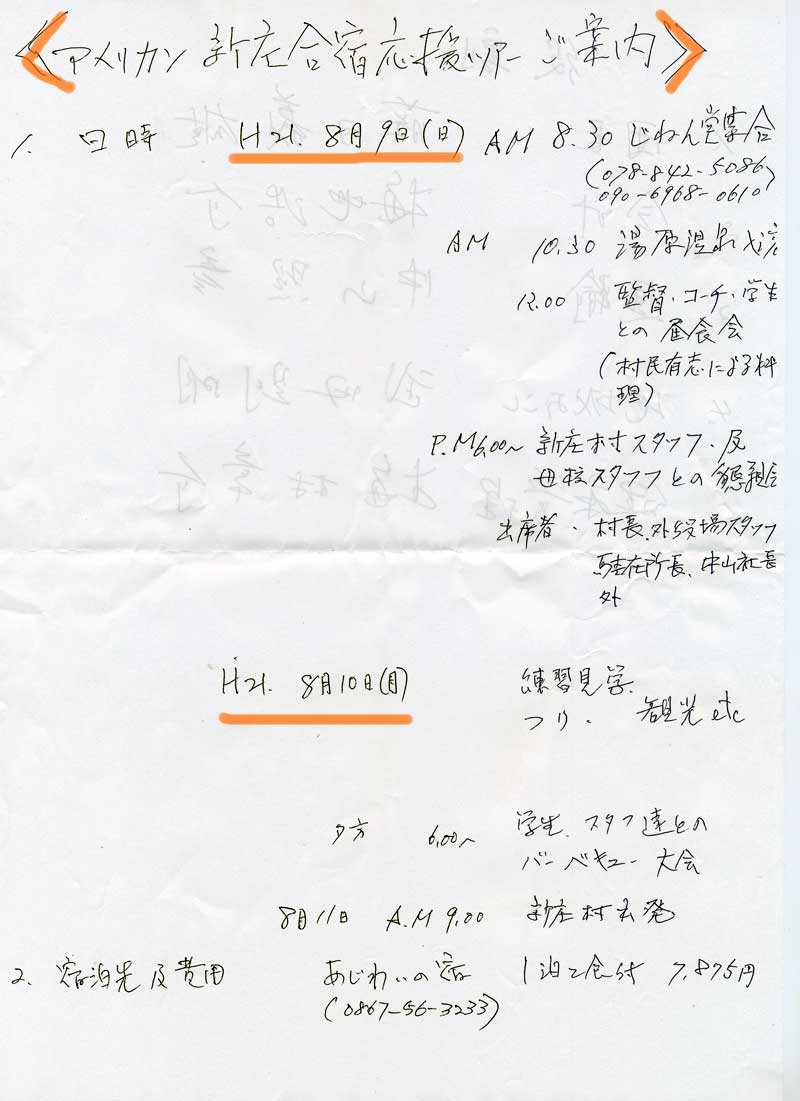 アメリカン 新庄合宿応援ツアー ご案内
1. 日時 H21. 8月9日(日) AM 8.30 じねん堂集合
(078-842-5086
090-6968-0610)
AM 10.30 湯原温泉
12.00 監督・コーチ・学生
との昼食会
(村民有志による料
理)
P.M 6.00～ 新庄村スタッフ・及
母校スタッフとの懇親会
出席者・村長、外役場スタッフ
駐在所長、中山社長
外
H21. 8月10日(月) 練習見学.
つり. 観光 etc
夕方 6.00～ 学生、スタフ達との
バーベキュー大会
8月11日 A.M 9.00 新庄村出発
2. 宿泊先及費用 あじわいの宿 1泊2食付 7.875円
(0867-56-3233)